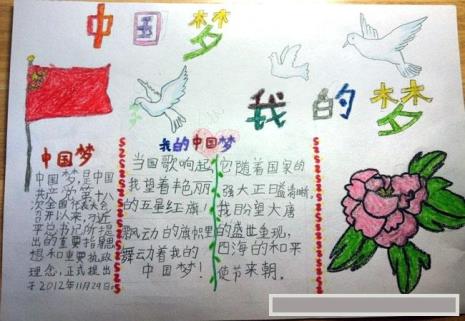 中国梦
我的梦
中国梦
中国梦，是中国
共产党第十八
次全国代表大会
召开以来，习近
平总书记所提
出的重要指导思
想和重要执政
理念，正式提出
于2012年11月29日。
我的中国梦
当国歌响起，
我望着艳丽
的五星红旗！
飘动的旗帜里
舞动着我的
中国梦！
它随着国家的
强大正日益清晰，
我盼望大唐
的盛世重现，
四海的和平
使节来朝。